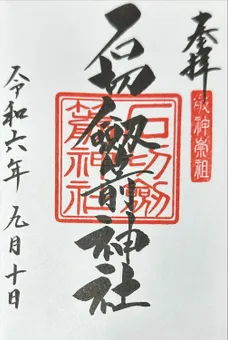 奉拝
敬神崇祖
石切劔箭神社
石切劔箭神社
令和六年 九月十日